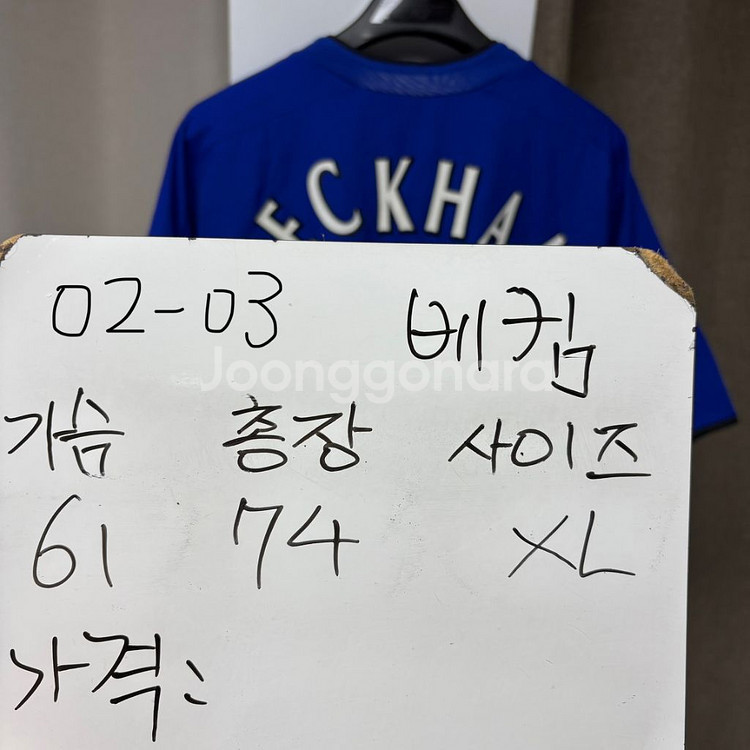 ECKHA
02-03 베컴
Joonggonara
가슴 총장 사이즈
61 74 XL
가격: